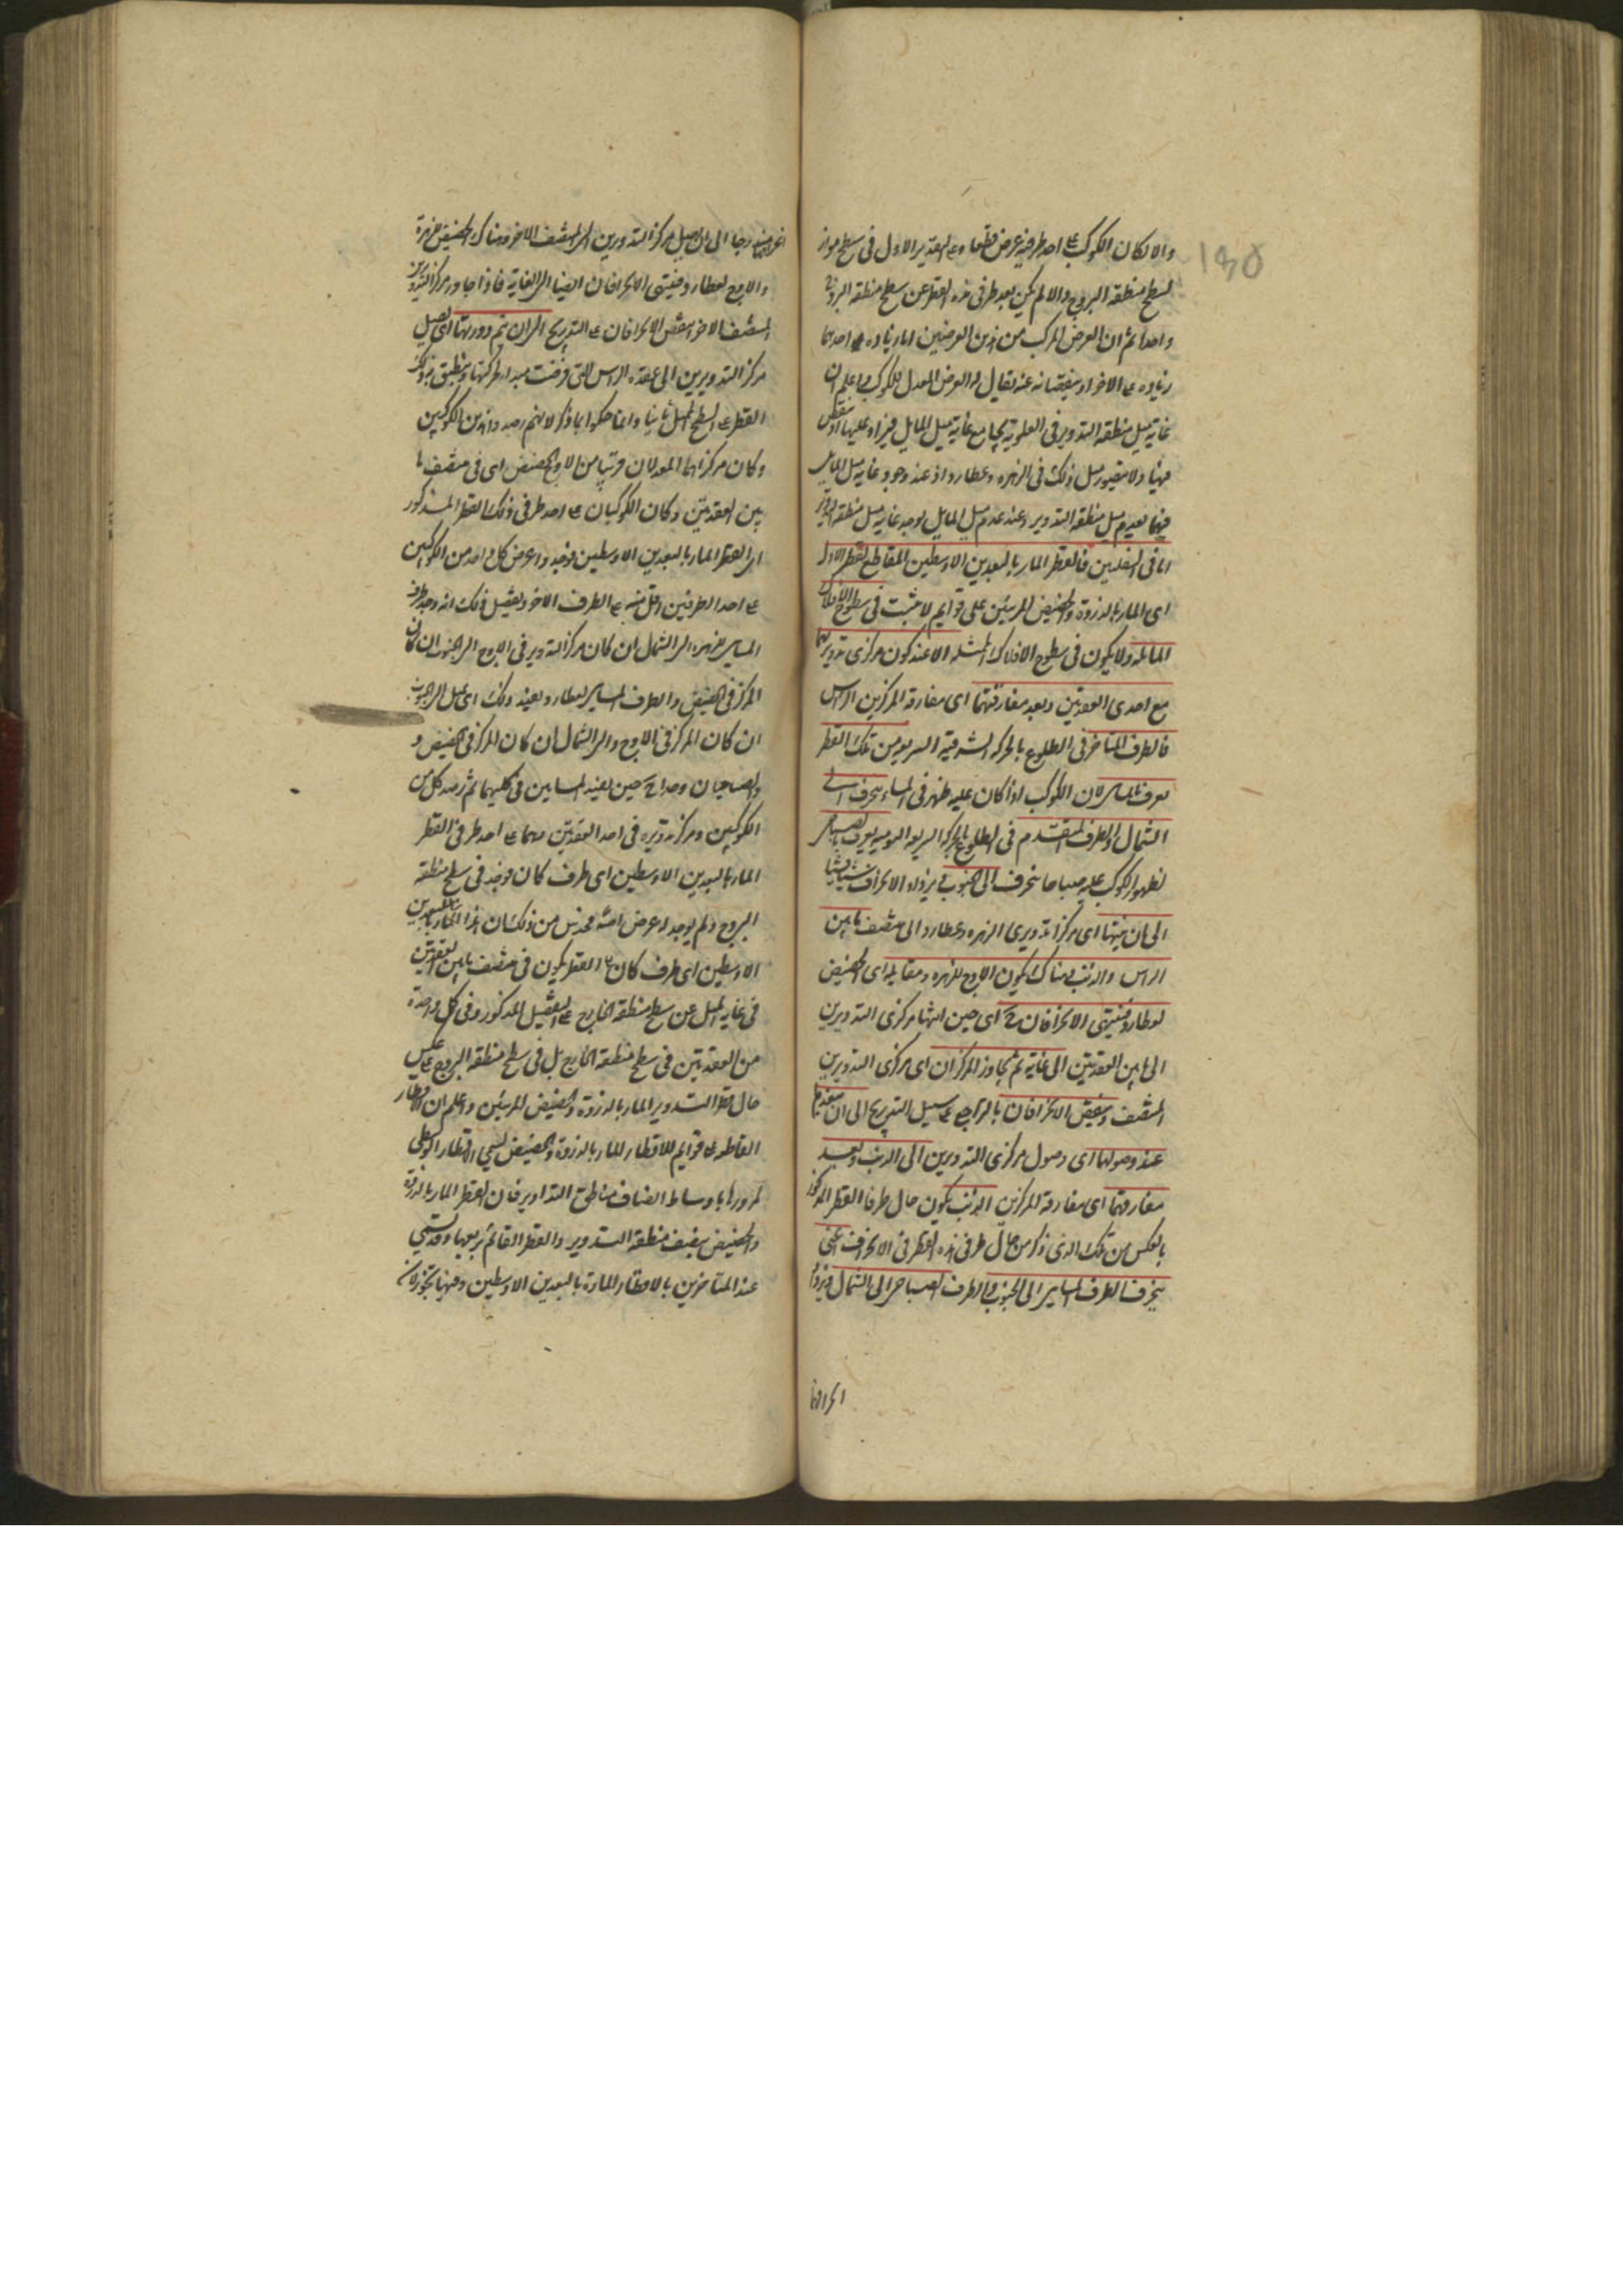 والا لكان الكوكب على احد طرفيه عرض قطعا وعلى التقدير الاول فى سطح مواز
لسطح منطقة البروج والا لم يكن بعد طرفى هذه القطر عن سطح منطقة البروج
واحدا ثم ان العرض المركب من هذين العرضين اما بزيادة احدهما
زيادة على الاخر او بنقصانه عنه يقال له العرض المعدل للكوكب واعلم ان
غاية ميل منطقة التدوير فى العلوية يجامع غاية ميل المايل فيزاد عليها او ينقص
منها ولا يتصور مثل ذلك فى الزهره وعطارد اذ عند وجود غاية ميل المايل
فيهما يعدم ميل منطقة التدوير وعند عدم ميل المايل يوجد غاية ميل منطقة التدوير
اما فى السفليين فالقطر المار بالبعدين الاوسطين المقاطع للقطر الاول
اى المار بالذروة والحضيض المرئيين على قوايم لا يثبت فى سطوح الافلاك
المائله ولا يكون فى سطوح الافلاك الممثله الا عند كون مركزى تدويريهما
مع احدى العقدتين وبعد مفارقتهما اى مفارقة المركزين الراس
فالطرف المتاخر فى الطلوع بالحركة الشرقية السريعة من تلك القطر
يعرف بالمسائى لان الكوكب اذا كان عليه ظهر فى المساء ينحرف الى
الشمال والطرف المتقدم فى الطلوع بالحركة السريعه اليوميه يعرف بالصباحى
لظهور الكوكب عليه صباحا ينحرف الى الجنوب ويزداد الانحراف شيئا شيئا
الى ان ينتهيا اى مركزا تدويرى الزهره وعطارد الى منتصف ما بين
الراس والذنب وهناك يكون الاوج للزهره ومقابله اى الحضيض
لعطارد فينتهى الانحرافان ح اى حين انتهاء مركزى التدويرين
الى ما بين العقدتين الى غاية ثم يجاوز المركزان اى مركزى التدويرين
المنتصف وينقص الانحرافان بالتراجع على سبيل التدريج الى ان ينعدما
عند وصولهما اى وصول مركزى التدويرين الى الذنب وبعد
مفارقتهما اى مفارقة المركزين الذنب يكون حال طرفا القطر المذكور
بالعكس من تلك الذى ذكر من حال طرفى هذه القطر فى الانحراف اعنى
ينحرف الطرف المسائى الى الجنوب والطرف الصباحى الى الشمال فيزداد
انحرافهما
انحرافهما متدرجا الى ان يصل مركز التدويرين الى المنتصف الاخر وهناك الحضيض للزهرة
والاوج لعطارد فينتهى الانحرافان ايضا الى الغاية فاذا جاوز مركز التدويرين
المنتصف الاخر انتقص الانحرافان على التدريج الى ان يتم دورتهما اى يصل
مركز التدويرين الى عقدة الراس التى فرضت مبدا لحركتهما وينطبق
القطر على السطح الممثل ثانيا وانما حكموا بما ذكر لانهم رصدوا هذين الكوكبين
وكان مركزاهما المعدلان قريبا من الاوج والحضيض اى فى منتصف ما
بين العقدتين وكان الكوكبان على احد طرفى ذلك القطر المذكور
اى القطر المار بالبعدين الاوسطين فوجدوا عرض كل واحد من الكوكبين
على احد الطرفين اقل منه على الطرف الاخر وتفصيل ذلك انه وجد طرف
المسائى للزهره الى الشمال ان كان مركز التدوير فى الاوج والى الجنوب ان كان
المركز فى الحضيض والطرف المسائى لعطارد بضد ذلك اى ميل الى الجنوب
ان كان المركز فى الاوج والى الشمال ان كان المركز فى الحضيض و
والصباحيان وجدا ح حين بضد المسايين فى كليهما ثم رصد كل من
الكوكبين ومركز تدويره فى احد العقدتين وهما على احد طرفى القطر
المار بالبعدين الاوسطين اى طرف كان فوجد فى سطح منطقة
البروج ولم يوجد له عرض اصلا فحدس من ذلك ان هذا المار بالبعدين
الاوسطين اى طرف كان القطر يكون فى منتصف ما بين العقدتين
فى غاية الميل عن سطح منطقة الخارج على التفصيل المذكور وفى كل واحدة
من العقدتين فى سطح منطقة الخارج بل فى سطح منطقة البروج على عكس
حال قطر التدوير المار بالذروة والحضيض المرئيين واعلم ان الاقطار
القاطعه على قوايم للاقطار المار بالذروة والحضيض تسمى الاقطار الوسطى
لمرورها باوساط انصاف مناطق التداوير فان القطر المار بالذروة
والحضيض ينصف منطقة التدوير والقطر القائم يربعها وقد تسمى
عند المتاخرين بالاقطار المارة بالبعدين الاوسطين وفيها تجوز لان